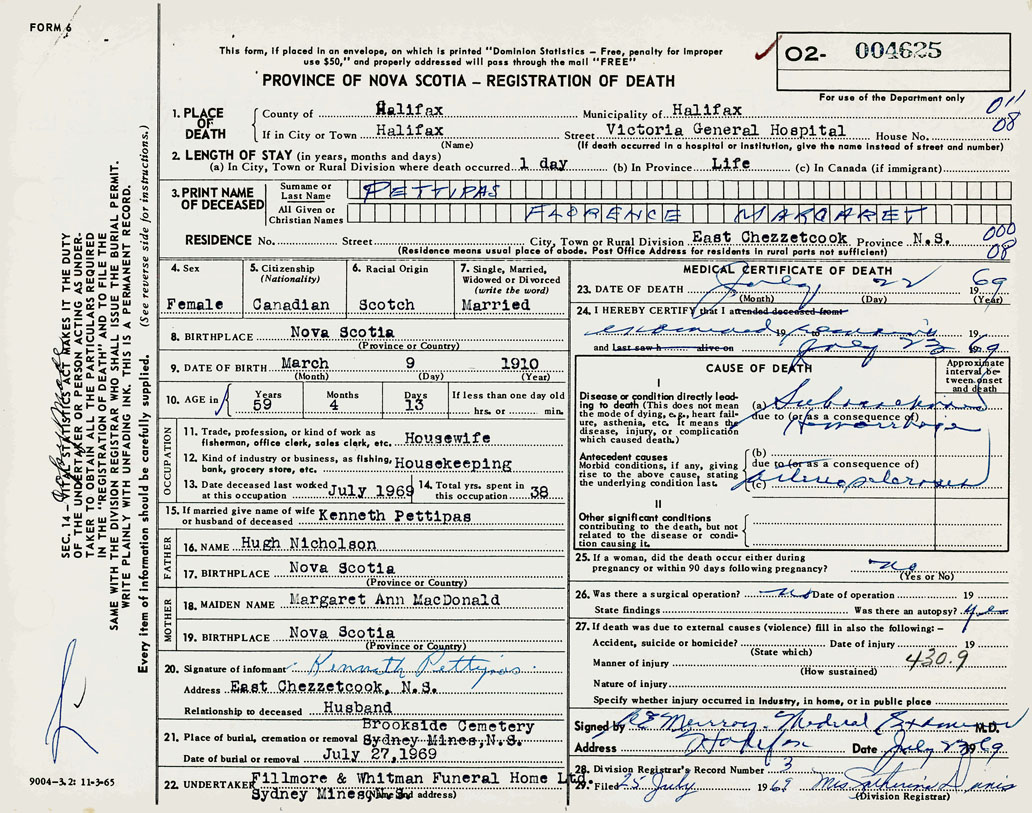 FORM 6
This form, if placed in an envelope, on which is printed "Dominion Statistics – Free, penalty for improper
use $50," and properly addressed will pass through the mail "FREE"
PROVINCE OF NOVA SCOTIA – REGISTRATION OF DEATH
O2- 004625
For use of the Department only
011
08
1. PLACE OF DEATH
County of Halifax Municipality of Halifax
If in City or Town Halifax Street Victoria General Hospital House No.
(Name) (If death occurred in a hospital or institution, give the name instead of street and number)
2. LENGTH OF STAY (in years, months and days)
(a) In City, Town or Rural Division where death occurred 1 day (b) In Province Life (c) In Canada (if immigrant)
3. PRINT NAME OF DECEASED
Surname or Last Name PETTIPAS
All Given or Christian Names FLORENCE MARGARET
000
08
RESIDENCE No. Street City, Town or Rural Division East Chezzetcook Province N.S.
(Residence means usual place of abode. Post Office Address for residents in rural parts not sufficient)
4. Sex
Female
5. Citizenship
(Nationality)
Canadian
6. Racial Origin
Scotch
7. Single, Married,
Widowed or Divorced
(write the word)
Married
8. BIRTHPLACE Nova Scotia
(Province or Country)
9. DATE OF BIRTH March 9 1910
(Month) (Day) (Year)
10. AGE in Years Months Days If less than one day old
59 4 13 hrs. or min.
OCCUPATION
11. Trade, profession, or kind of work as
fisherman, office clerk, sales clerk, etc. Housewife
12. Kind of industry or business, as fishing,
bank, grocery store, etc. Housekeeping
13. Date deceased last worked
at this occupation July 1969
14. Total yrs. spent in
this occupation 38
15. If married give name of wife
or husband of deceased Kenneth Pettipas
FATHER
16. NAME Hugh Nicholson
17. BIRTHPLACE Nova Scotia
(Province or Country)
MOTHER
18. MAIDEN NAME Margaret Ann MacDonald
19. BIRTHPLACE Nova Scotia
(Province or Country)
20. Signature of informant Kenneth Pettipas
Address East Chezzetcook, N.S.
Relationship to deceased Husband
Brookside Cemetery
21. Place of burial, cremation or removal Sydney Mines, N.S.
Date of burial or removal July 27, 1969
22. UNDERTAKER Fillmore & Whitman Funeral Home Ltd.
Sydney Mines N.S.
(Name and address)
MEDICAL CERTIFICATE OF DEATH
23. DATE OF DEATH July 22 1969
(Month) (Day) (Year)
24. I HEREBY CERTIFY that I attended deceased from
examined 19 remains 19
and last saw h alive on July 23 1969
CAUSE OF DEATH
Approximate
interval be-
tween onset
and death
I
Disease or condition directly lead-
ing to death (This does not mean
the mode of dying, e.g., heart fail-
ure, asthenia, etc. It means the
disease, injury, or complication
which caused death.)
(a) Subarachnoid
due to (or as a consequence of)
Hemorrhage
Antecedent causes
Morbid conditions, if any, giving
rise to the above cause, stating
the underlying condition last.
(b)
due to (or as a consequence of)
(c) arteriosclerosis
II
Other significant conditions
contributing to the death, but not
related to the disease or condi-
tion causing it.
25. If a woman, did the death occur either during
pregnancy or within 90 days following pregnancy? no
(Yes or No)
26. Was there a surgical operation? no Date of operation 19
State findings Was there an autopsy? yes
27. If death was due to external causes (violence) fill in also the following: –
Accident, suicide or homicide? Date of injury 19
(State which)
Manner of injury 430.9
(How sustained)
Nature of injury
Specify whether injury occurred in industry, in home, or in public place
Signed by Murray - Medical Examiner M.D.
Address Halifax Date July 23 1969
28. Division Registrar's Record Number 3
29. Filed 25 July 1969 Mrs Catherine
(Division Registrar)
SEC. 14 – VITAL STATISTICS ACT MAKES IT THE DUTY
OF THE UNDERTAKER OR PERSON ACTING AS UNDER-
TAKER TO OBTAIN ALL THE PARTICULARS REQUIRED
IN THE "REGISTRATION OF DEATH" AND TO FILE THE
SAME WITH THE DIVISION REGISTRAR WHO SHALL ISSUE THE BURIAL PERMIT.
WRITE PLAINLY WITH UNFADING INK. THIS IS A PERMANENT RECORD.
Every item of information should be carefully supplied. (See reverse side for instructions.)
9004-3.2: 11-3-65